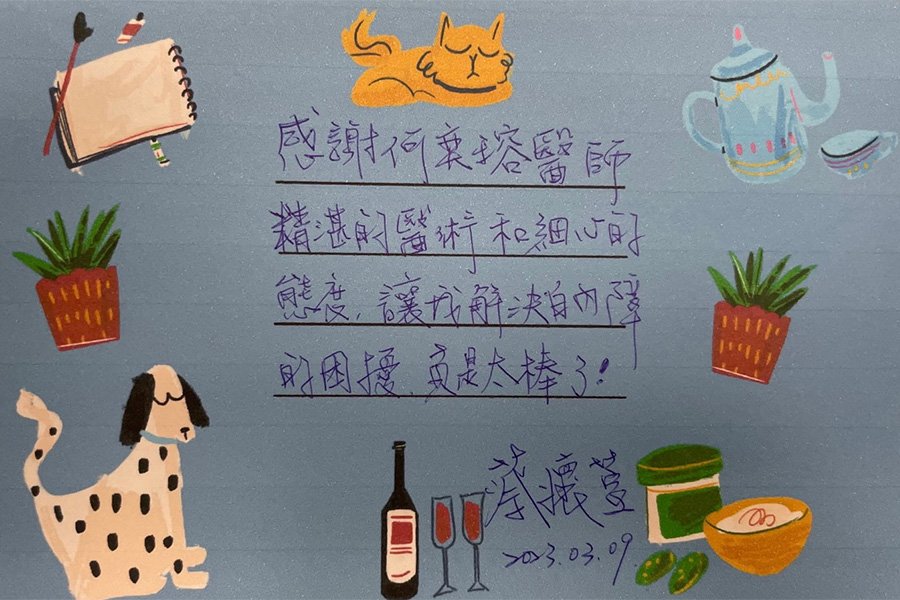 感謝何奕瑢醫師
精湛的醫術和細心的
態度,讓我解決白內障
的困擾,真是太棒了!
蔡懷萱
2023.03.09